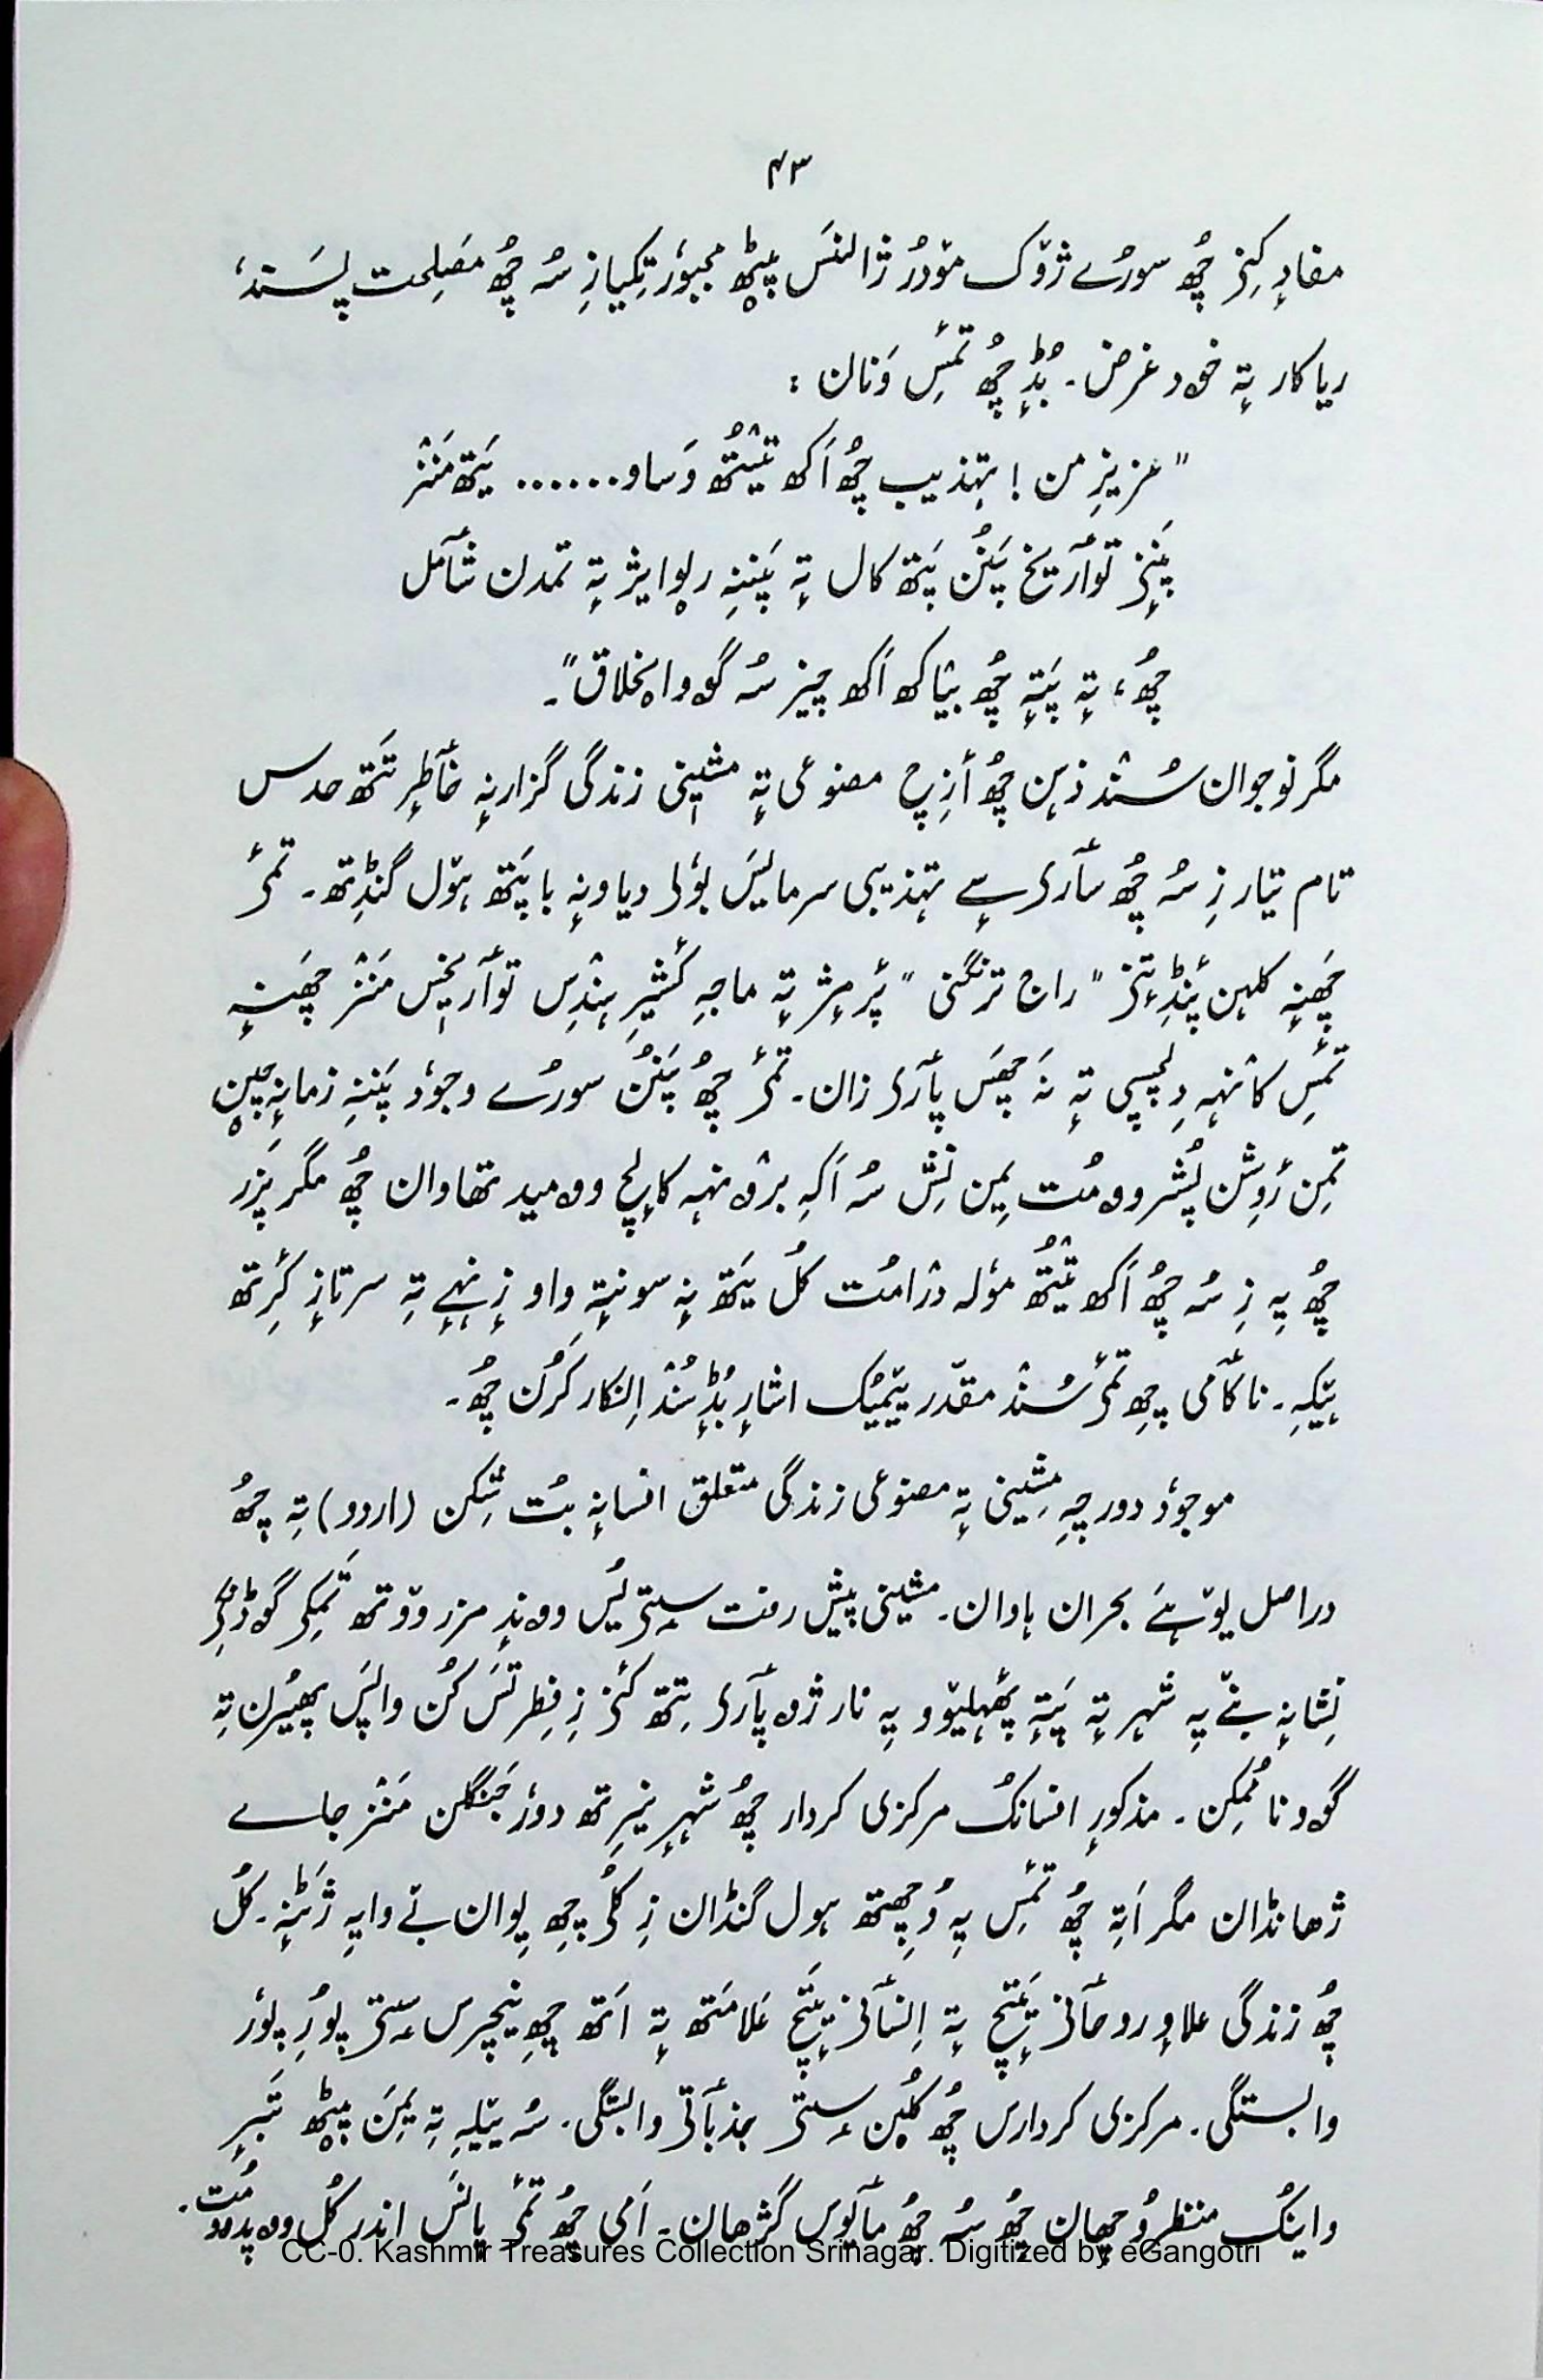 ۴۳
مفادٕ کِنۍ چُھ سورُے ژۆک مۆدُر ژالنَس پؠٹھ مجبوٗر تِکیازِ سُہ چُھ مَصلِحت پسَند،
ریاکار تہٕ خود غرض۔ بُڈٕ چُھ تَمِس وَنان :
"عزیزِ من! تہذیب چُھ اَکھ تیُتھ وَساو...... یَتھ مَنٛز
پَنٕنۍ توأریٖخ پَنُن پَتھ کال تہٕ پَننہِ رِوایژ تہٕ تمدن شأمل
چُھ، تہٕ پَتہٕ چُھ بیٛاکھ اَکھ چیز سُہ گوو اخلاق"۔
مگر نوجوان سُنٛد ذہن چُھ أزِچ مصنوعی تہٕ مشینی زندگی گزارنہٕ خأطرٕ تَتھ حدس
تام تیار زِ سُہ چُھ سأری سٕے تہذیبی سرمایَس بوٗلۍ دیاونہٕ باپَتھ ہۆل گنٛڈِتھ۔ تَمۍ
چَھنہٕ کلہن پَنٛڈِتٕنۍ "راج ترنگنی" پٔرمٕژ تہٕ ماجہِ کٔشیرِ ہِنٛدِس توأریٖخس مَنٛز چَھنہٕ
تَمِس کانٛہہ دِلچسپی تہٕ نَہ چَھس پأرۍ زان۔ تَمۍ چُھ پَنُن سورُے وجوٗد پَننہِ زمانہٕ چین
تِمن رَوِشن پُشرووٚمُت یِمن نِش سُہ اَکہِ برٛونٛہہ کالٕچ وومید تھاوان چُھ مگر پَزر
چُھ یہِ زِ سُہ چُھ اَکھ تیُتھ موٗلہ درٛامُت کُل یَتھ نہٕ سونتہٕ واو زٕنٛہہے تہِ سرتازٕ کٔرِتھ
ہیٚکہِ۔ ناکأمی چِھ تَمۍ سُنٛد مقدّر یِتیُک اشارٕ بُڈٕ سُنٛد اِنکار کَرُن چُھ۔
موجوٗد دور چہِ مشینی تہٕ مصنوعی زندگی متعلق افسانہٕ بُت شِکن (اردو) تہِ چُھ
دراصل یۆہَے بحران ہاوان۔ مشینی پیش رفت سٟتۍ یُس ووندٕ مزر وۆتھ تَمِکۍ گوڈنِکۍ
نِشانہٕ بنےٚیہِ شہر تہٕ پَتہٕ پھہلیۆو یہِ نار ژوپأرۍ تِتھ کٔنۍ زِ فِطرتَس کُن واپَس پھیرُن تہِ
گوو نا مُمکِن۔ مذکورٕ افسانُک مرکزی کردار چُھ شہرٕ نیٖرِتھ دوٗر جَنگلن مَنٛز جاے
ژھانڈان مگر اَتہِ چُھ تَمِس یہِ وُچِھتھ ہول گنڈان زِ کُلۍ چِھ یِوان بے وایہِ ژَٹنہٕ۔ کُل
چُھ زندگی علاوٕ روحأنی یَتٕچ تہٕ اِنسأنی یتٕچ عَلامَتھ تہٕ اَتھ چِھ نیچرس سٟتۍ پوٗرٕ پوٗر
وابستگی۔ مرکزی کردارس چُھ کُلیٚن سٟتۍ جذبأتی وابستگی۔ سُہ ییٚلہِ تہِ یِمَن پؠٹھ تَبرِ
واینُک منظر وُچھان چُھ سُہ چُھ مأیوس گژھان۔ اَمی چُھ تَمۍ پانَس اندر کُل ووپدووٚمُت۔
CC-0. Kashmir Treasures Collection Srinagar. Digitized by eGangotri